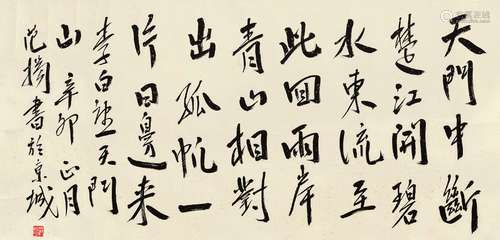 天門中斷
楚江開碧
水東流至
此回兩岸
青山相對
出孤帆一
片日邊来
李白望天門
山 辛卯 正月
范揚書於京城